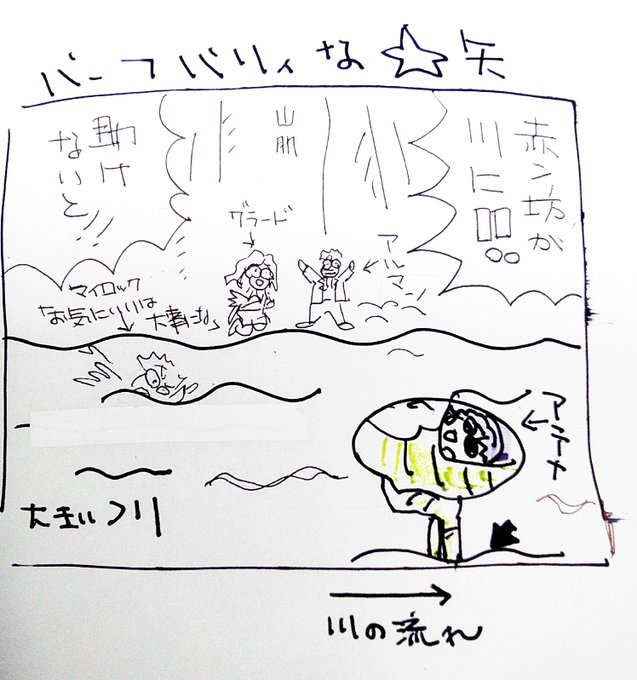 バーフバリィな☆矢
赤ン坊が
川に!!
山肌
助け
ないと!!
グラード
アルマン
マイロック
「お気にいりは
大事にな」
アテナ
大きい川
川の流れ